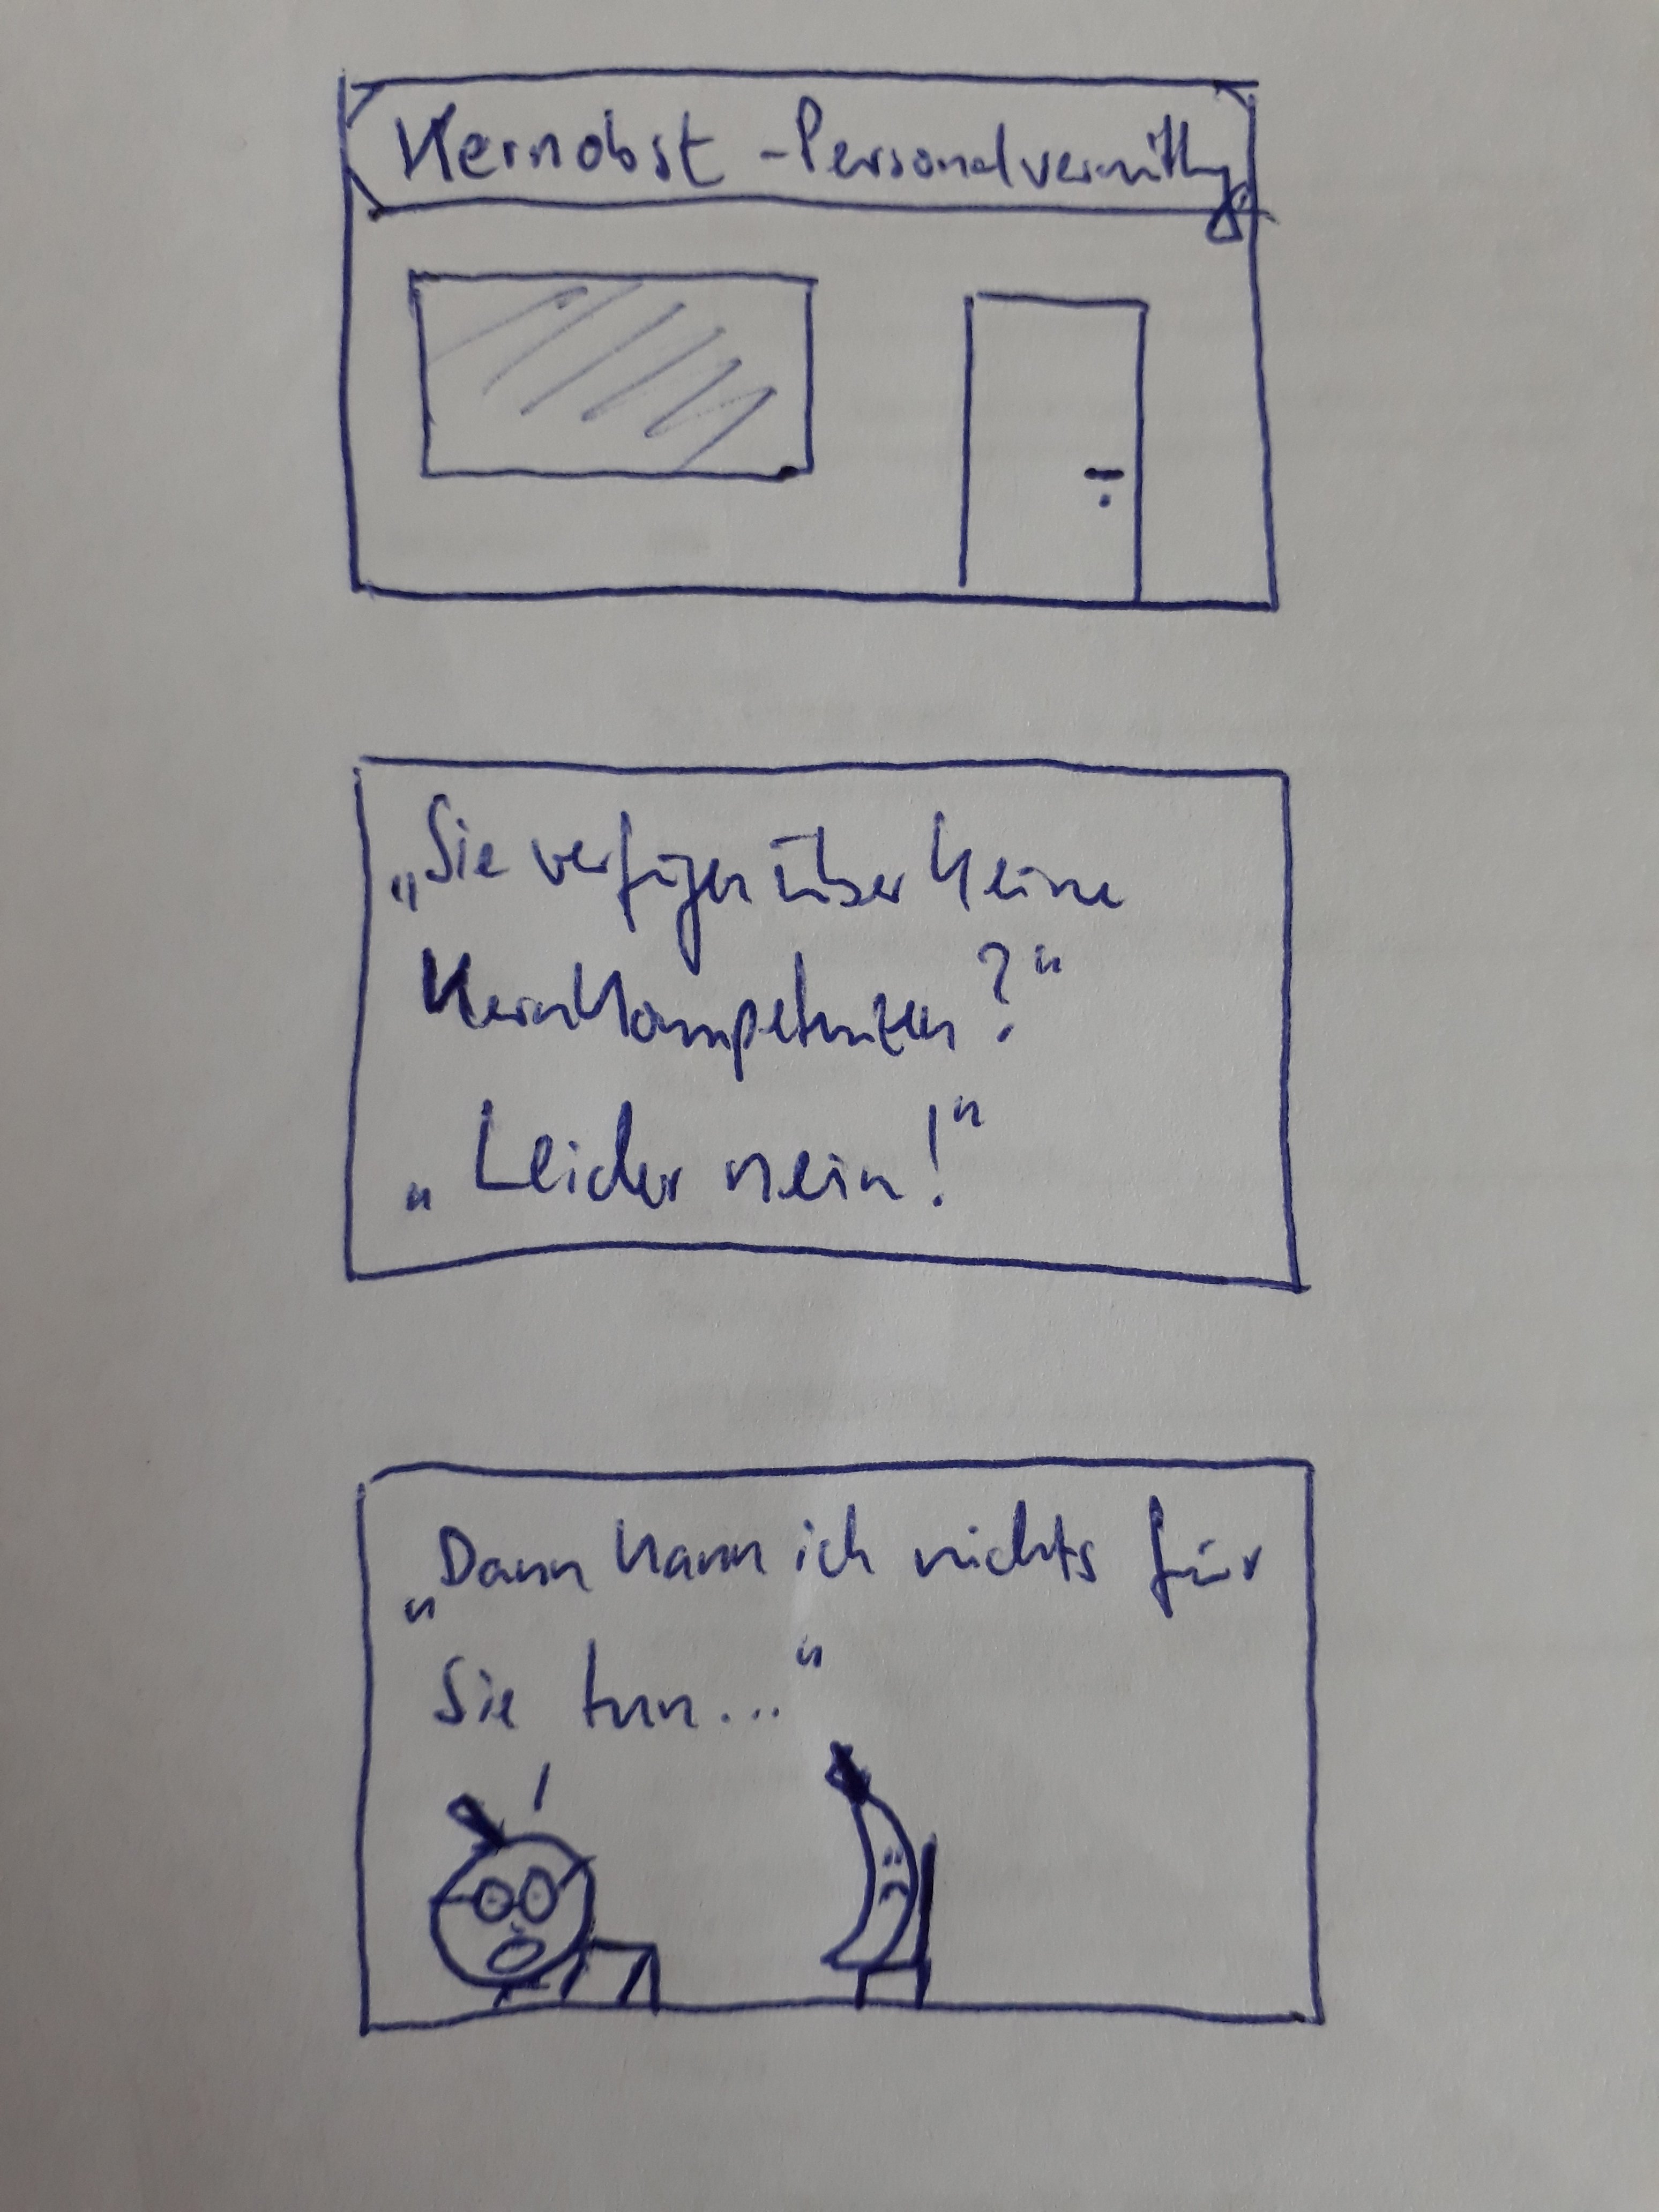 Kernobst - Personalvermittlg
„Sie verfügen über keine
Kernkompetenzen?“
„Leider nein!“
„Dann kann ich nichts für
Sie tun...“